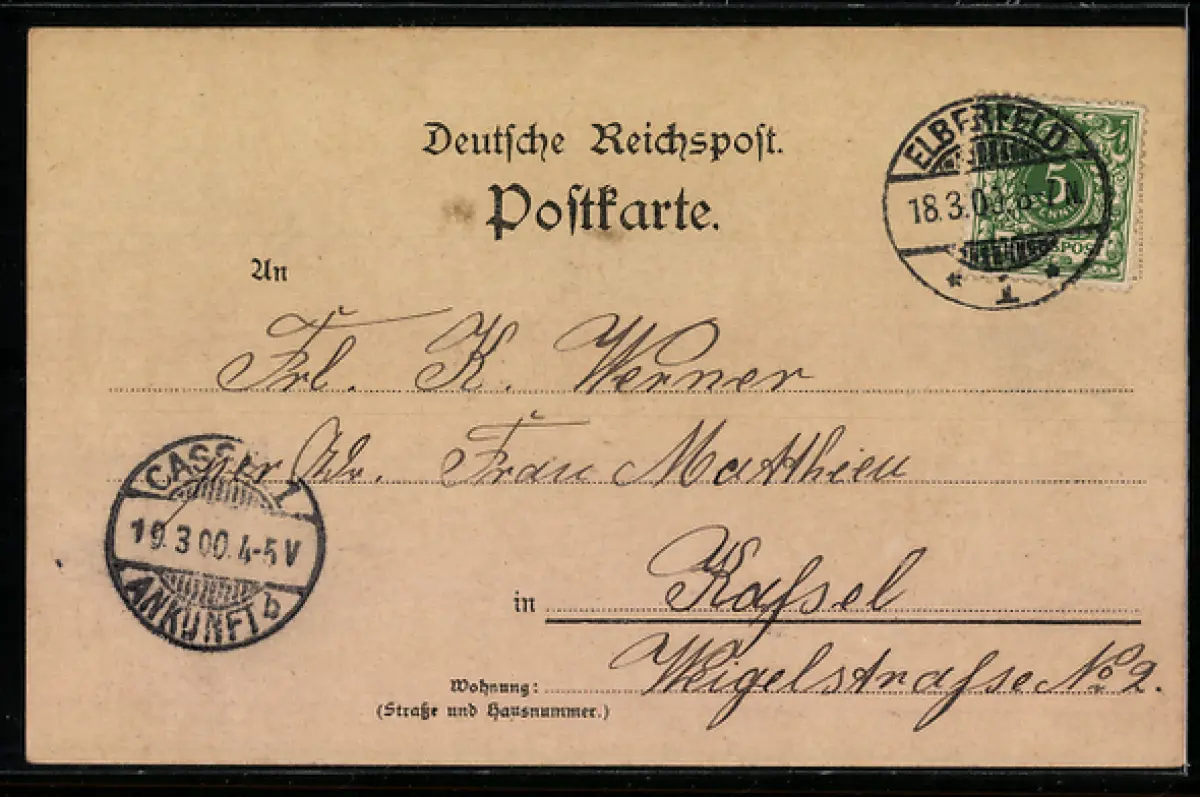 Deutsche Reichspost.
Postkarte.
ELBERFELD
18.3.00. 6-7 N
* 1 *
5
An
Frl. K. Werner
per Adr. Frau Matthieu
CASSEL 1
19.3.00. 4-5 V
ANKUNFT b
in Kaſsel
Wohnung: Weigelstraſse No 2.
(Straße und Hausnummer.)